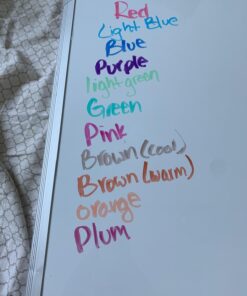 Red
Light Blue
Blue
Purple
light green
Green
Pink
Brown (cool)
Brown (warm)
orange
Plum